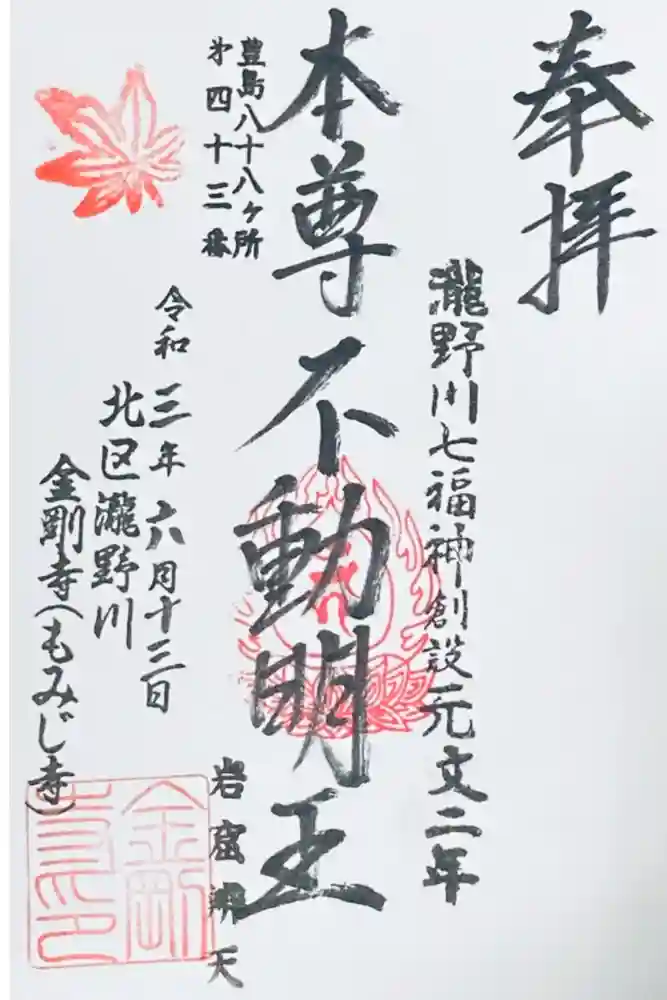 奉拝
瀧野川七福神創設元文二年
本尊不動明王
豊島八十八ヶ所
第四十三番
岩窟辨天
令和三年六月十三日
北区瀧野川
金剛寺(もみじ寺)
金剛
寺印